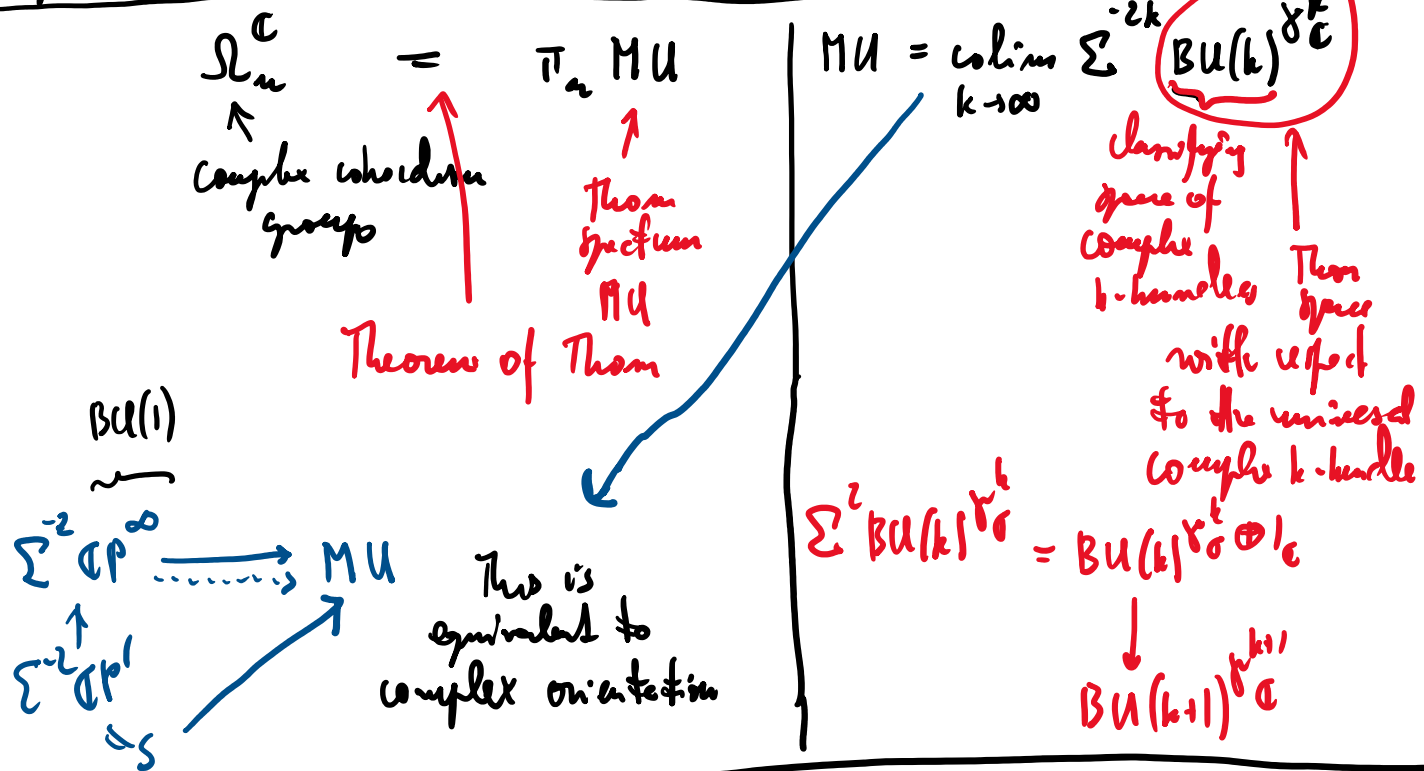 Ω_n^ℂ = π_n MU
complex cobordism
groups
Thom
spectrum
MU
Theorem of Thom
BU(1)
Σ^{-2} ℂP^∞ → MU
Σ^{-2} ℂP^1
≃ S
This is
equivalent to
complex orientation
MU = colim Σ^{-2k} BU(k)^{γ_ℂ^k}
k→∞
classifying
space of
complex
k-bundles
Thom
space
with respect
to the universal
complex k-bundle
Σ^2 BU(k)^{γ_ℂ^k} = BU(k)^{γ_ℂ^k ⊕ 1_ℂ}
BU(k+1)^{γ_ℂ^{k+1}}